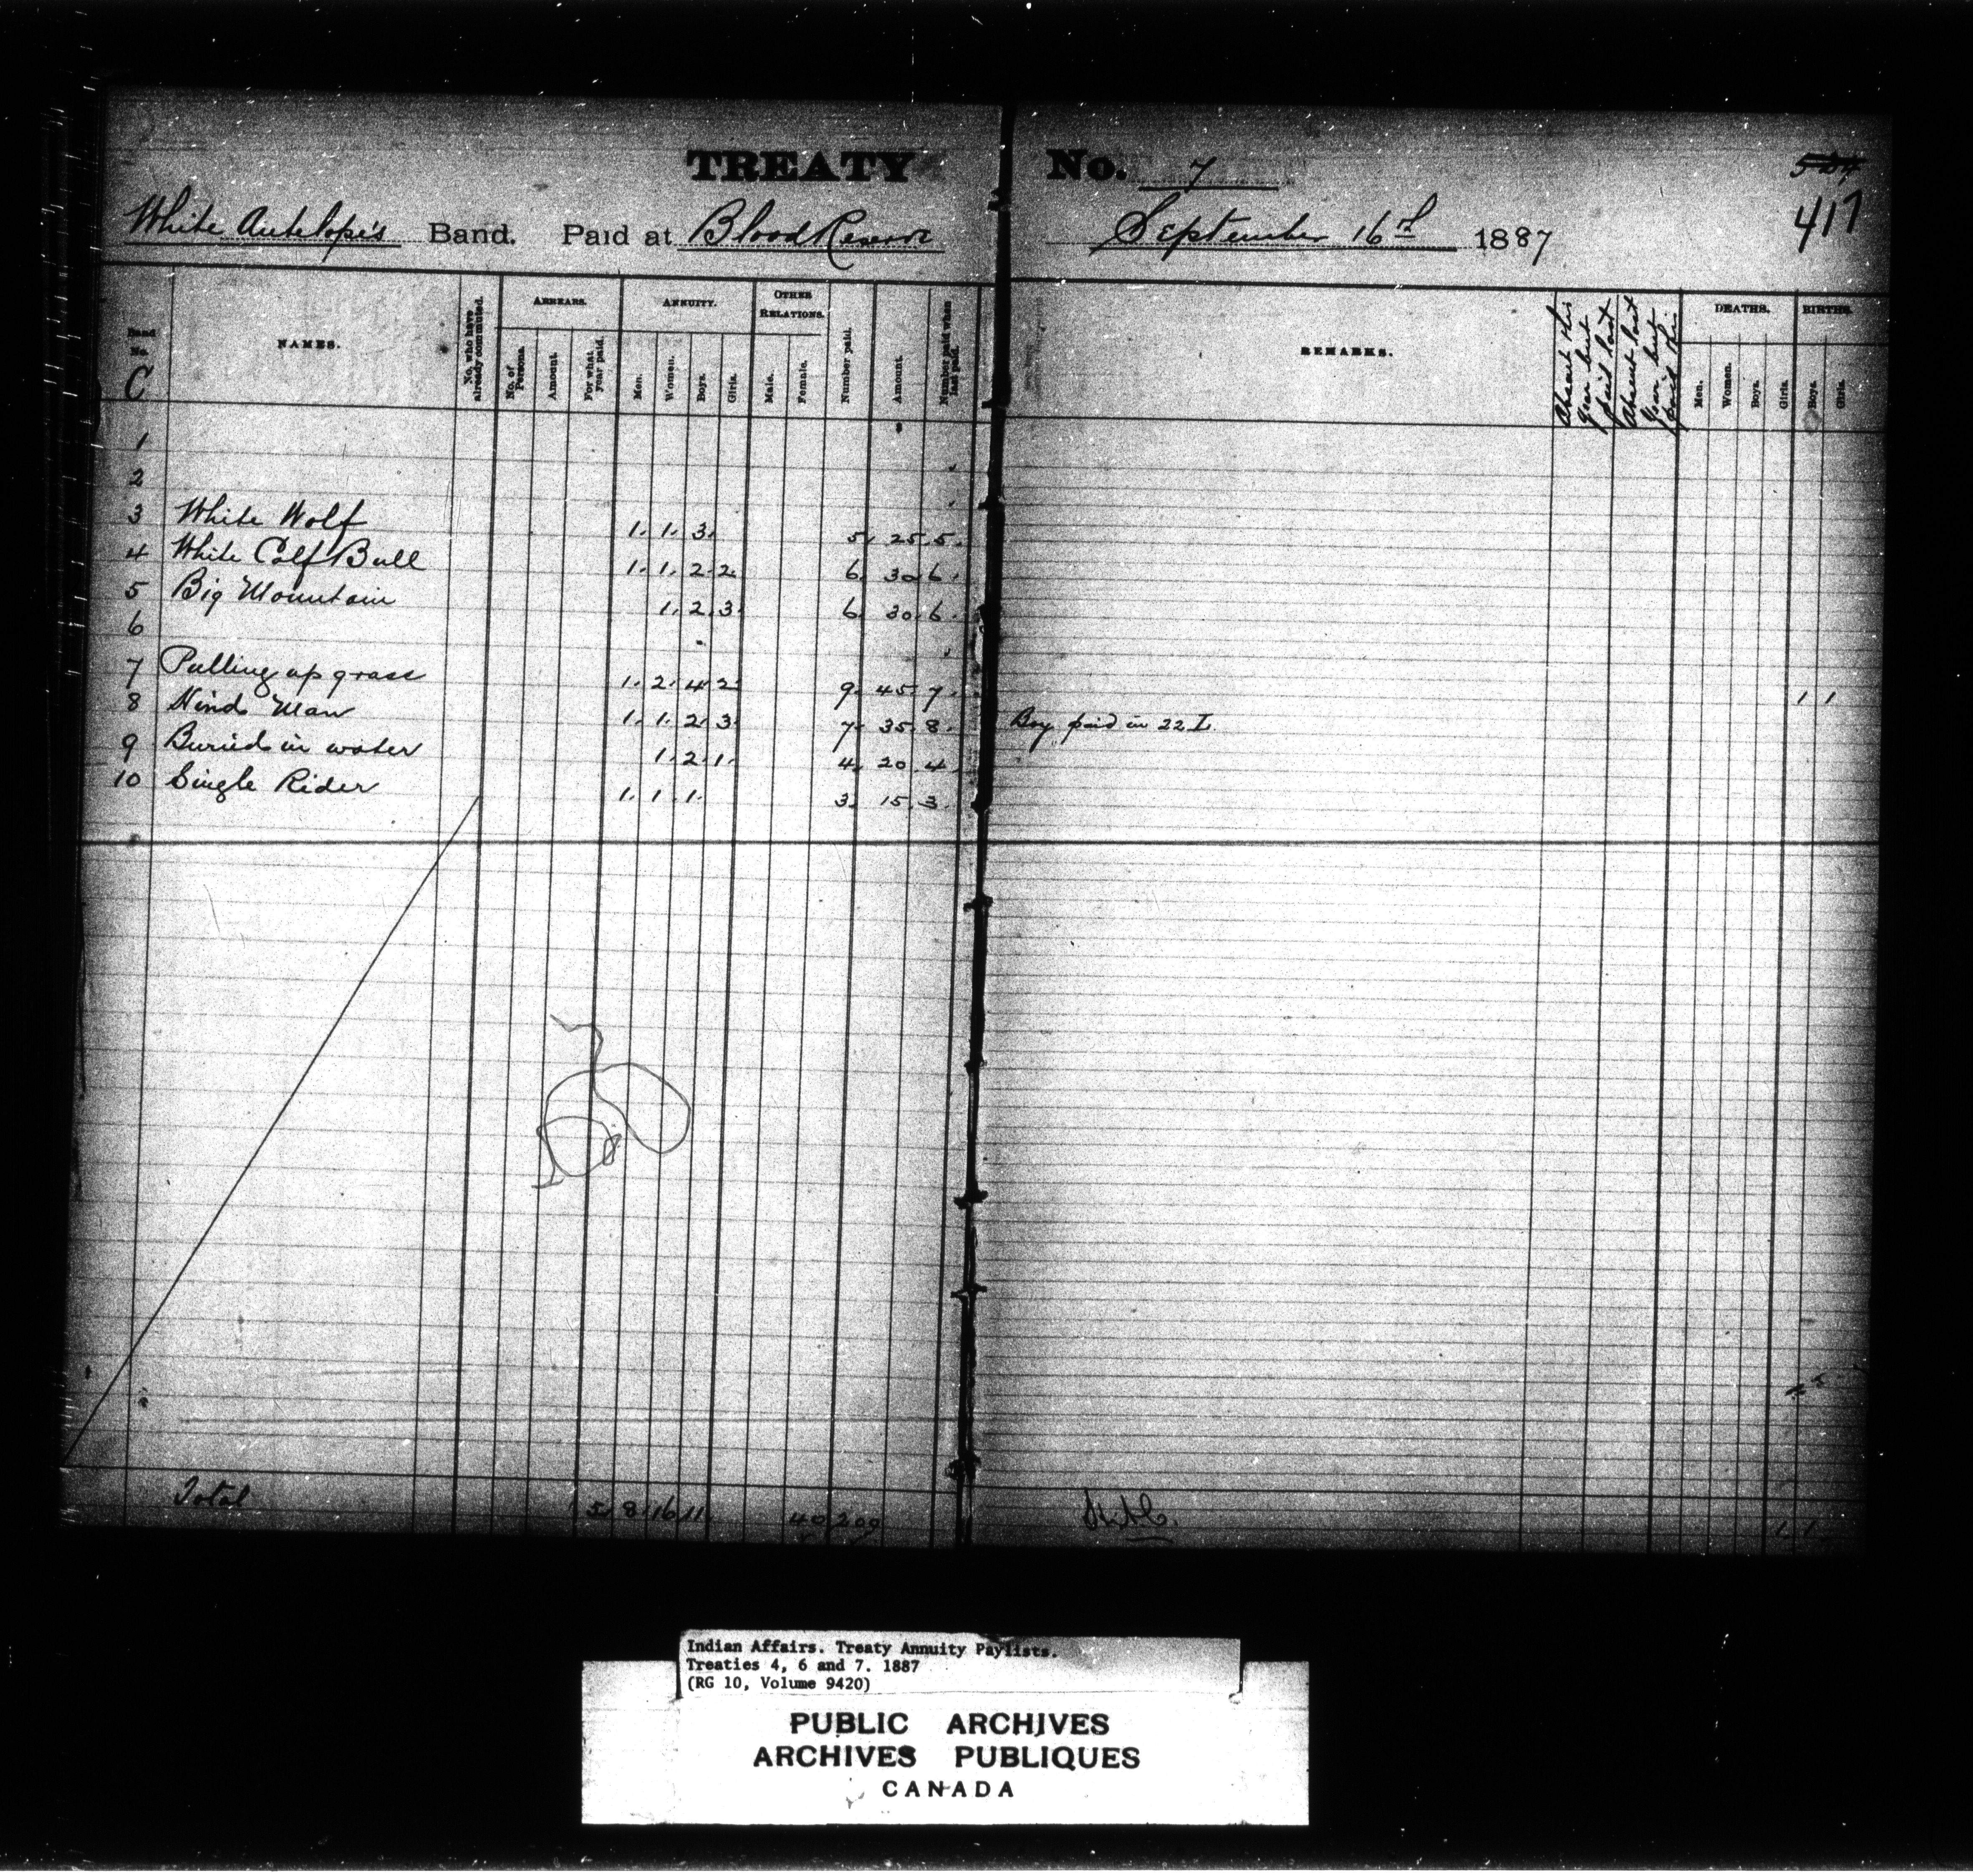 TREATY No. 7
417
White Antelope's Band. Paid at Blood Reserve September 16th 1887
Band No. C
NAMES.
No. who have already commuted.
ARREARS.
No. of Persons.
Amount.
For what year paid.
ANNUITY.
Men.
Women.
Boys.
Girls.
OTHER RELATIONS.
Male.
Female.
Number paid.
Amount.
Number paid when last paid.
REMARKS.
Absent this year but paid last
Absent last year but paid this
DEATHS.
Men.
Women.
Boys.
Girls.
BIRTHS.
Boys.
Girls.
$
1
2
3 White Wolf 1. 1. 3. 5. 25. 5.
4 White Calf Bull 1. 1. 2. 2. 6. 30. 6.
5 Big Mountain 1. 2. 3. 6. 30. 6.
6
7 Pulling up grass 1. 2. 4. 2. 9. 45. 7. 1 1
8 Hind Man 1. 1. 2. 3. 7. 35. 8. Boy paid in 22 I
9 Buried in water 1. 2. 1. 4. 20. 4.
10 Single Rider 1. 1. 1. 3. 15. 3.
Total 5. 8. 16. 11. 40. 200 1. 1.
Indian Affairs. Treaty Annuity Paylists.
Treaties 4, 6 and 7. 1887
(RG 10, Volume 9420)
PUBLIC ARCHIVES
ARCHIVES PUBLIQUES
CANADA